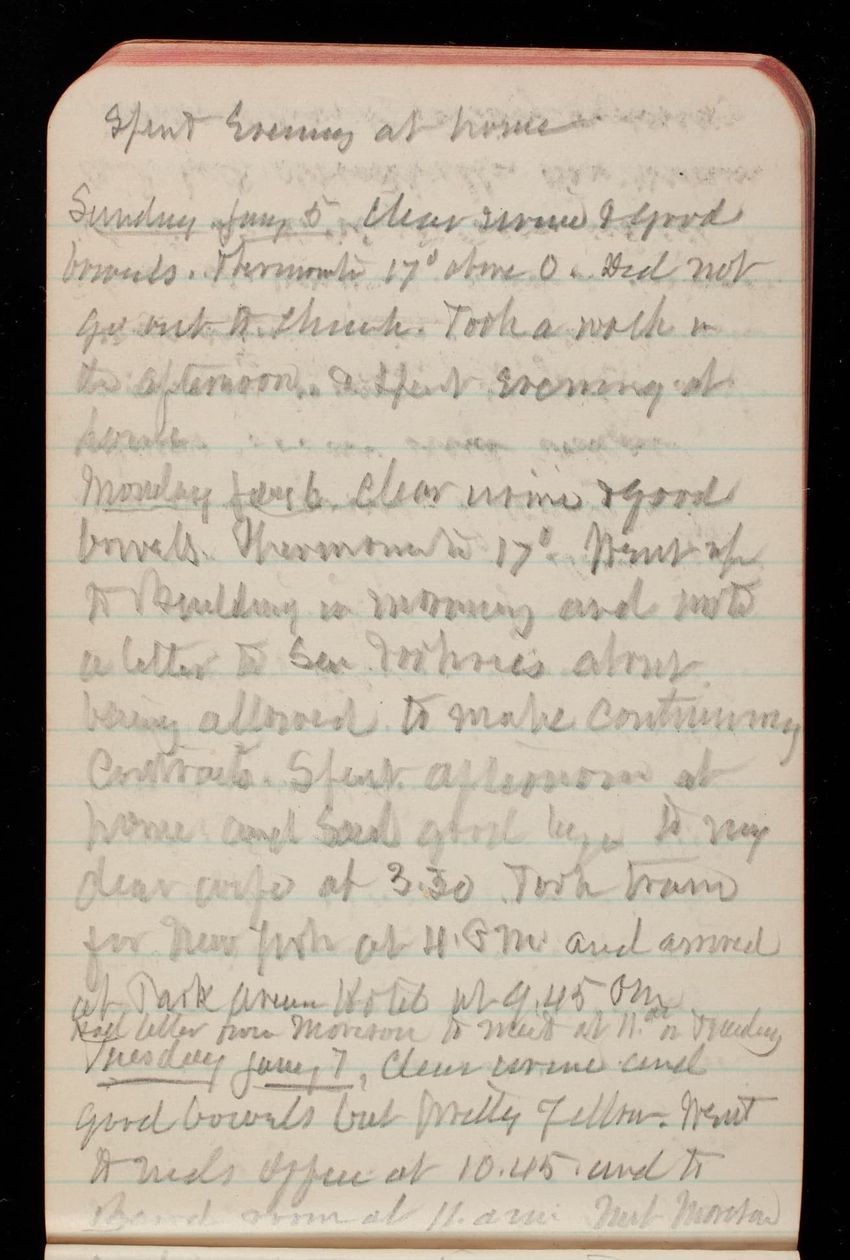 Spent Evening at home
Sunday Jany 5 Clear urine & good
bowels. Thermomete 17° above 0. Did not
go out to church. Took a walk in
the afternoon. & Spent Evening at
home
Monday Jany 6. Clear urine & good
bowels. Thermomete 17°. Went up
to Building in morning and wrote
a letter to Sen about
being allowed to make Continuing
Contracts. Spent afternoon at
home and Said good bye to my
dear wife at 3.30 Took train
for New York at 4. P M and arrived
at Park Avenue Hotel at 9.45 Pm
Had letter from Morrison to meet at 11.00 on Tuesday
Tuesday Jany 7, Clear urine and
good bowels but pretty yellow. Went
to Neds Office at 10.45 and to
Board room at 11. a m Met Morrison